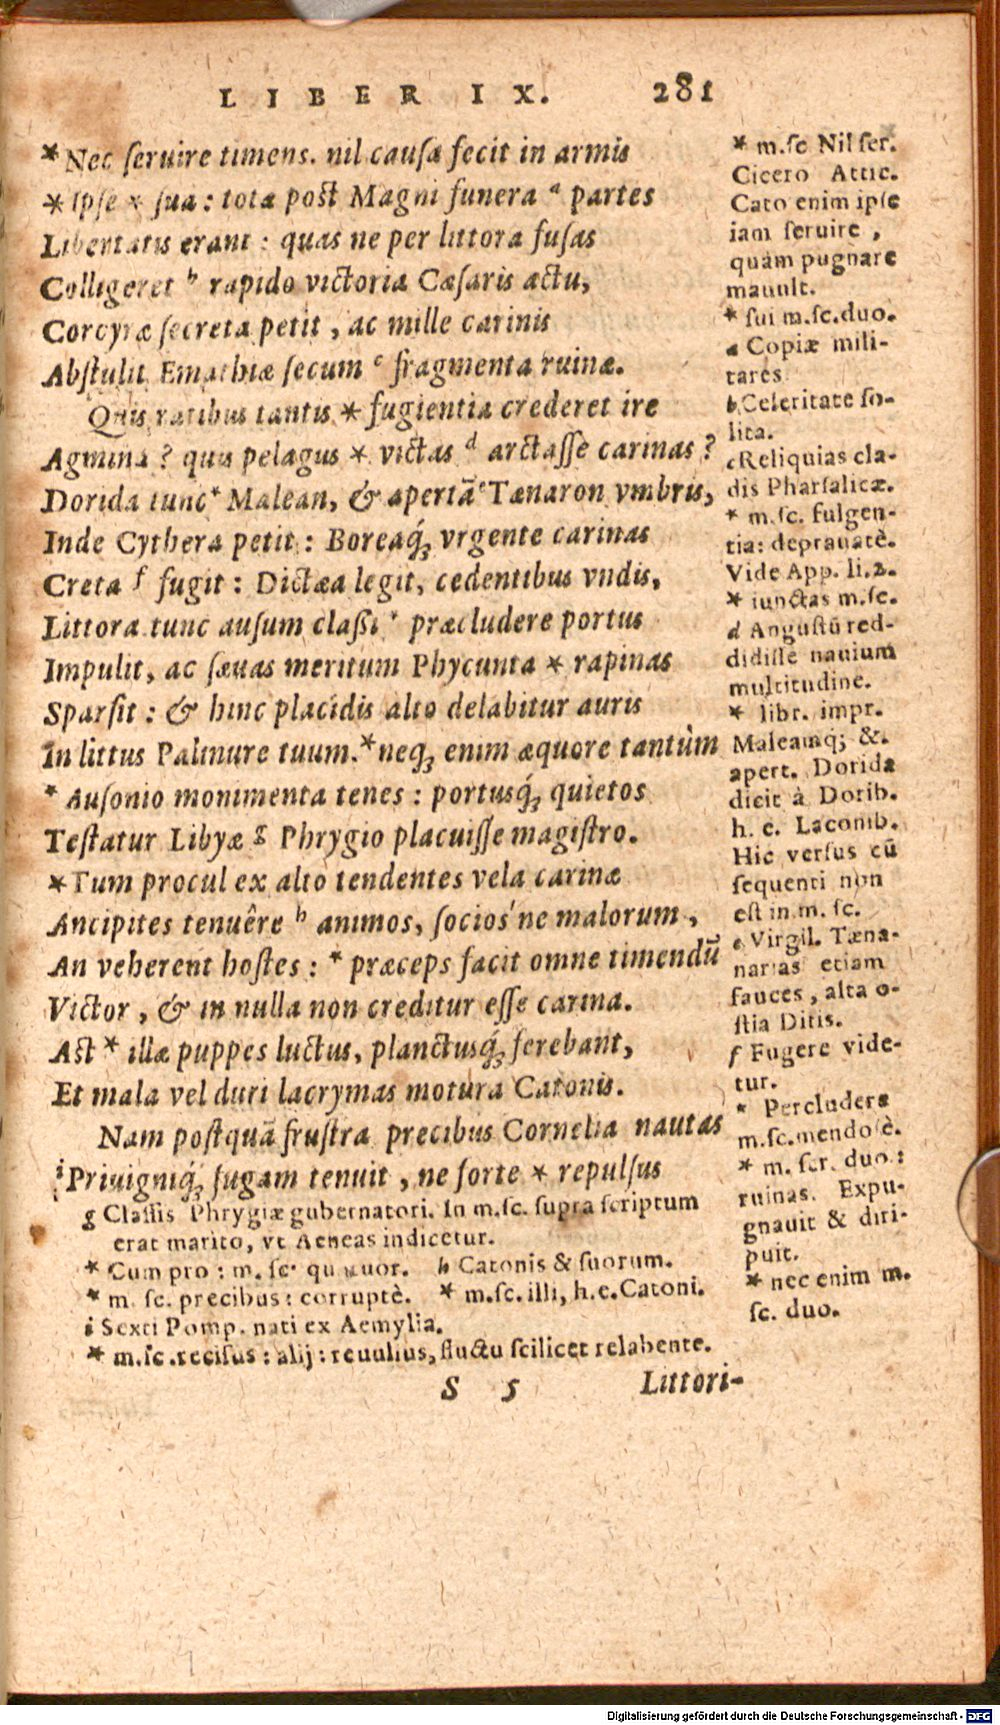 LIBER IX. 281
* Nec ſeruire timens. nil cauſæ fecit in armis
* Ipſe * ſua: tota poſt Magni funera ª partes
Libertatis erant: quas ne per littora fuſas
Colligeret ᵇ rapido victoria Cæſaris actu,
Corcyræ ſecreta petit, ac mille carinis
Abſtulit Emathiæ ſecum ᶜ fragmenta ruinæ.
Quis ratibus tantis * fugientia crederet ire
Agmina? quis pelagus * victas ᵈ arctaſſe carinas?
Dorida tunc * Malean, & apertã ᵉ Tænaron vmbris,
Inde Cythera petit: Boreaq́; vrgente carinas
Creta ᶠ fugit: Dictæa legit, cedentibus vndis,
Littora. tunc auſum claſſi * præcludere portus
Impulit, ac ſæuas meritum Phycunta * rapinas
Sparſit: & hinc placidis alto delabitur auris
In littus Palinure tuum. * neq; enim æquore tantùm
* Auſonio monimenta tenes: portusq́; quietos
Teſtatur Libyæ ᵍ Phrygio placuiſſe magiſtro.
* Tum procul ex alto tendentes vela carinæ
Ancipites tenuêre ʰ animos, ſocios'ne malorum,
An veherent hoſtes: * præceps facit omne timendũ
Victor, & in nulla non creditur eſſe carina.
Aſt * illæ puppes luctus, planctusq́; ferebant,
Et mala vel duri lacrymas motura Catonis.
Nam poſtquã fruſtra precibus Cornelia nautas
ⁱ Priuigniq́; fugam tenuit, ne forte * repulſus
g Claſſis Phrygiæ gubernatori. In m.ſc. ſupra ſcriptum
erat marito, vt Aeneas indicetur.
* Cum pro: m. ſc. quatuor. h Catonis & ſuorum.
* m. ſc. precibus: corruptè. * m.ſc. illi, h.e. Catoni.
i Sexti Pomp. nati ex Aemylia.
* m.ſc. reciſus: alij: reuulſus, fluctu ſcilicet relabente.
S 5 Littori-
* m.ſc Nil ſer.
Cicero Attic.
Cato enim ipſe
iam ſeruire,
quàm pugnare
mauult.
* ſui m.ſc. duo.
a Copiæ mili-
tares
b Celeritate ſo-
lita.
c Reliquias cla-
dis Pharſalicæ.
* m.ſc. fulgen-
tia: deprauatè.
Vide App. li.2.
* iunctas m.ſc.
d Anguſtũ red-
didiſſe nauium
multitudine.
* libr. impr.
Maleamq; &.
apert. Dorida
dicit à Dorib.
h. e. Laconib.
Hic verſus cũ
ſequenti non
eſt in m. ſc.
e Virgil. Tæna-
narias etiam
fauces, alta o-
ſtia Ditis.
f Fugere vide-
tur.
* Percludere
m.ſc. mendosè.
* m. ſcr. duo:
ruinas. Expu-
gnauit & diri-
puit.
* nec enim m.
ſc. duo.
Digitalisierung gefördert durch die Deutsche Forschungsgemeinschaft - DFG